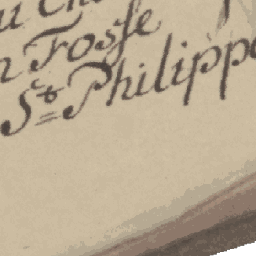 n Fosse
St Philipp